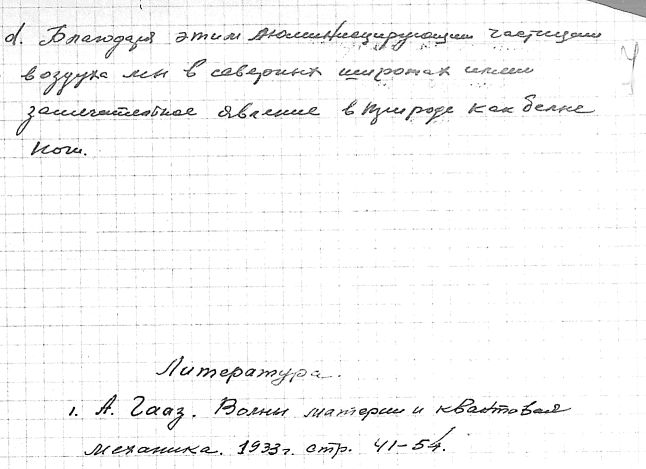 d. Благодаря этим люминисцирующим частицам
воздуха мы в северных широтах имеем
замечательное явление в природе как белые
ночи.
Литература.
1. А. Гааз. Волны материи и квантовая
механика. 1933 г. стр. 41-54.